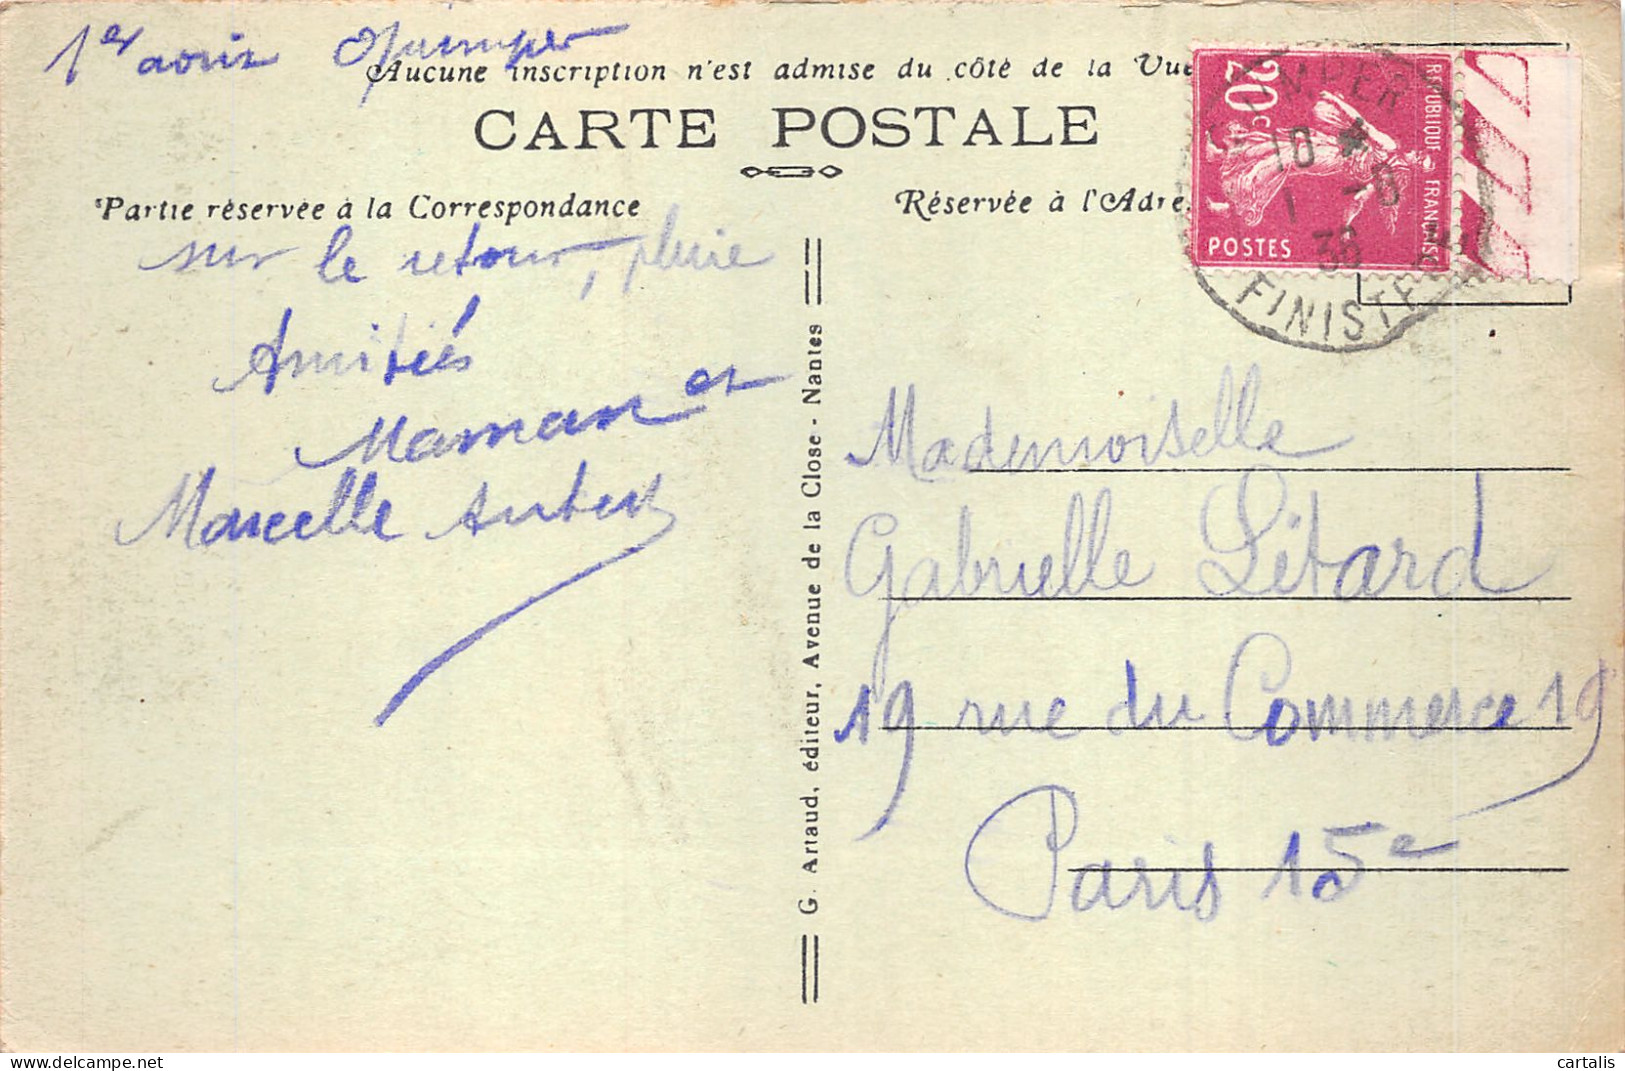 1er août Quimper
Aucune inscription n'est admise du côté de la Vue
CARTE POSTALE
Partie réservée à la Correspondance
Réservée à l'Adre
20c
POSTES
REPUBLIQUE FRANCAISE
10
1 -8
36
FINISTE
sur le retour, pluie
Amitiés
Maman et
Marcelle Aubert
G. Artaud, éditeur, Avenue de la Close - Nantes
Mademoiselle
Gabrielle Létard
19 rue du Commerce 19
Paris 15e
cartalis